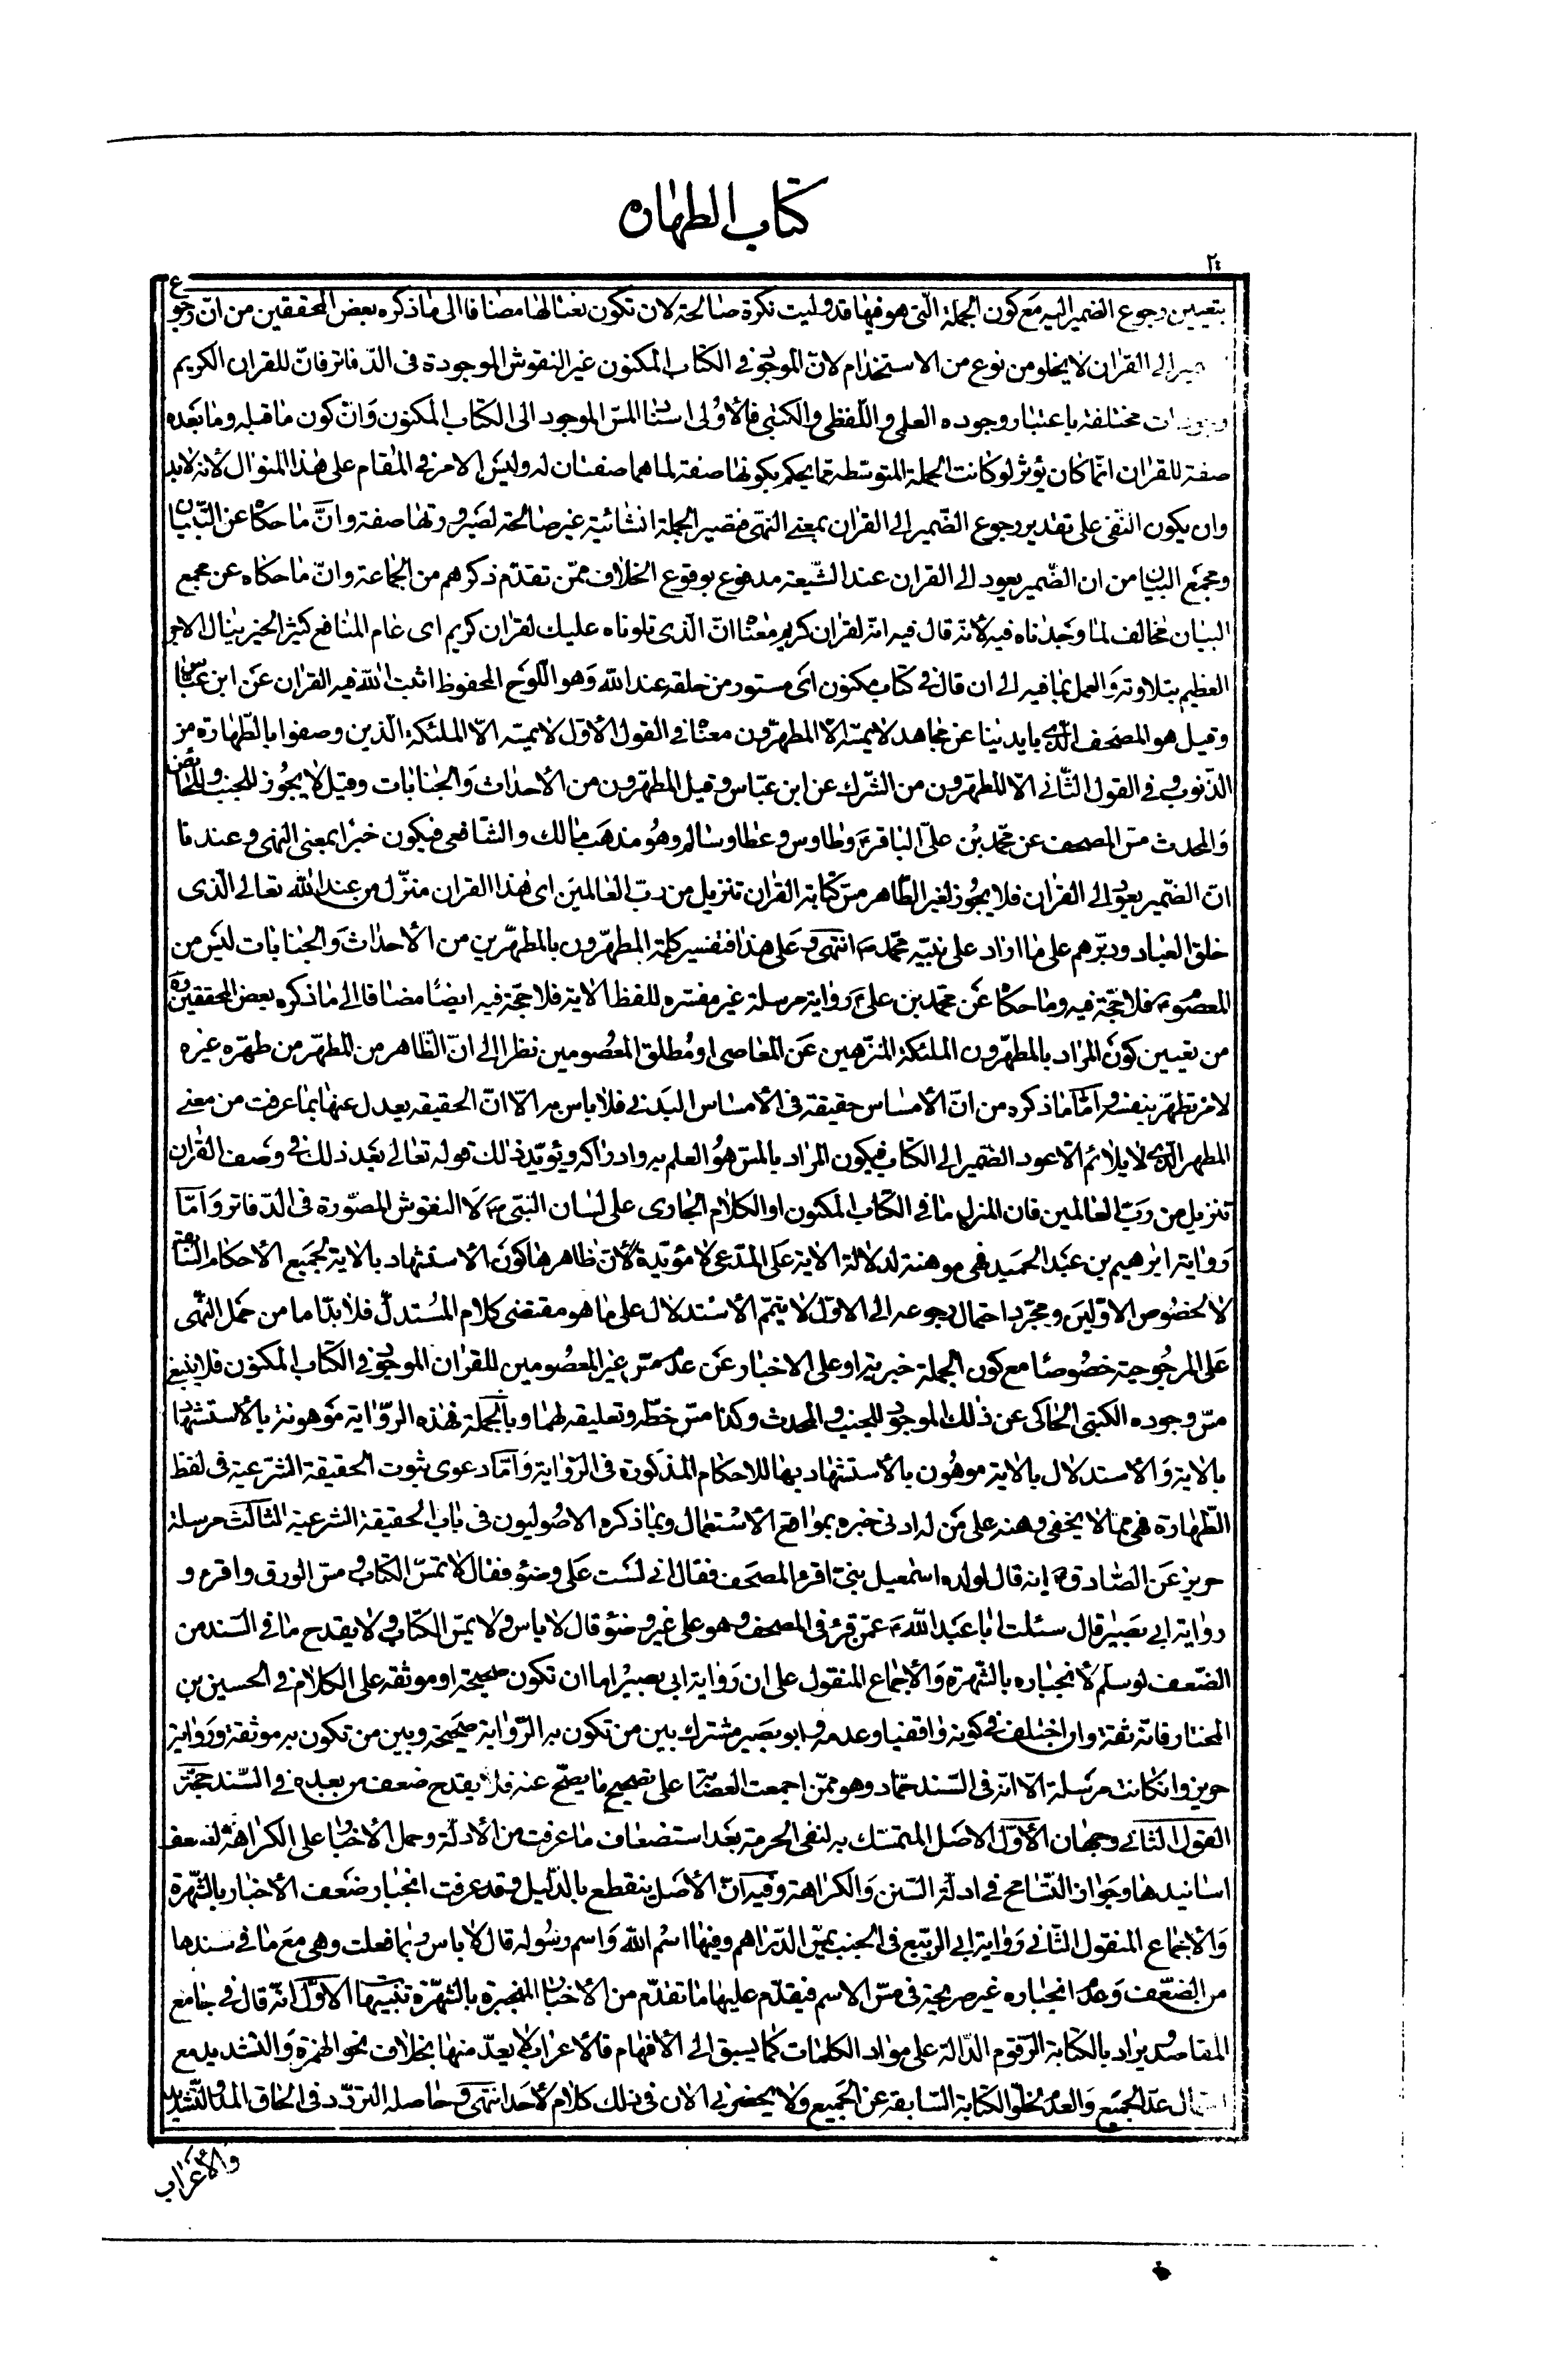 كتاب الطهارة
بتعيين رجوع الضمير اليه مع كون الجملة الّتى هو فيها قد وليت نكرة صالحة لان تكون نعتا لها مضافا الى ما ذكره بعض المحققين من انّ رجوع
الى القران لا يخلو من نوع من الاستخدام لانّ الموجود فى الكتاب المكنون غير النقوش الموجودة فى الدّفاتر فانّ للقران الكريم
مختلفة باعتبار وجوده العلمى واللّفظى والكتبى فالاولى اسناد المسّ الموجود الى الكتاب المكنون وانّ كون ما قبله وما بعده
صفة للقران انّما كان يؤثر لو كانت الجملة المتوسّطة ممّا يحكم بكونها صفة لما هما صفتان له وليس الامر فى المقام على هذا المنوال لانه لابد
وان يكون النّفى على تقدير رجوع الضّمير الى القران بمعنى النهى فتصير الجملة انشائية غير صالحة لصيرورتها صفة وانّ ما حكاه عن التّبيان
ومجمع البيان من ان الضّمير يعود الى القران عند الشّيعة مدفوع بوقوع الخلاف ممّن تقدّم ذكرهم من الجماعة وانّ ما حكاه عن مجمع
البيان مخالف لما وجدناه فيه لانّه قال فيه انّه لقران كريم معناه انّ الّذى تلوناه عليك لقران كريم اى عام المنافع كثير الخير ينال الاجر
العظيم بتلاوته والعمل بما فيه الى ان قال فى كتاب مكنون اى مستور من خلقه عند الله وهو اللّوح المحفوظ اثبت الله فيه القران عن ابن عبّاس
وقيل هو المصحف الّذى بايدينا عن مجاهد لا يمسّه الّا المطهّرون معناه فى القول الأوّل لا يمسّه الّا الملئكة الّذين وصفوا بالطّهارة من
الذّنوب وفى القول الثّانى الّا المطهّرون من الشّرك عن ابن عبّاس وقيل المطهّرون من الأحداث والجنابات وقيل لا يجوز للجنب والحائض
والمحدث مسّ المصحف عن محمّد بن علىّ الباقر ع وطاوس وعطا وسالم وهو مذهب مالك والشّافعى فيكون خبرا بمعنى النهى وعندنا
انّ الضّمير يعود الى القران فلا يجوز لغير الطّاهر مسّ كتابة القران تنزيل من ربّ العالمين اى هذا القران منزّل من عند الله تعالى الّذى
خلق العباد ودبّرهم على ما اراد على نبيّه محمّد ص انتهى وعلى هذا فتفسير كلمة المطهّرون بالمطهّرين من الأحداث والجنابات ليس من
المعصوم ع فلا حجّة فيه وما حكاه عن محمّد بن على ع رواية مرسلة غير مفسّره للفظ الاية فلا حجّة فيه ايضًا مضافا الى ما ذكره بعض المحققين ره
من تعيين كون المراد بالمطهّرون الملئكة المنزّهين عن المعاصى او مطلق المعصومين نظرا الى انّ الظّاهر من المطهّر من طهّره غيره
لا من تطهّر بنفسه وامّا ما ذكره من انّ الأمساس حقيقة فى الأمساس البدنى فلا باس به الّا انّ الحقيقة يعدل عنها بما عرفت من معنى
المطهر الّذى لا يلائم الّا عود الضّمير الى الكتاب فيكون المراد بالمسّ هو العلم به وادراكه ويؤيّد ذلك قوله تعالى بعد ذلك فى وصف القران
تنزيل من ربّ العالمين فان المنزل ما فى الكتاب المكنون او الكلام الجارى على لسان النبّى ص لا النقوش المصوّرة فى الدّفاتر وامّا
رواية ابرهيم بن عبد الحميد فهى موهنة لدلالة الاية على المدّعى لا مؤيّدة لأنّ ظاهرها كون الأستشهاد بالاية لجميع الأحكام السّابقة
لا لخصوص الاوّلين ومجرّد احتمال رجوعه الى الاوّل لا يتمّم الأستدلال على ما هو مقتضى كلام المستدلّ فلا بدّ اما من حمل النّهى
على المرجوحية خصوصا مع كون الجملة خبرية او على الاخبار عن عدم مسّ غير المعصومين للقران الموجود فى الكتاب المكنون فلا ينبغى
مسّ وجوده الكتبى الحاكى عن ذلك الموجود للجنب والمحدث وكذا مسّ خطّه وتعليقه لهما وبالجملة فهذه الرّواية موهونة بالأستشهاد
بالاية والأستدلال بالاية موهون بالأستشهاد بها للاحكام المذكورة فى الرّواية وامّا دعوى ثبوت الحقيقة الشرعية فى لفظ
الطّهارة فهى ممّا لا يخفى وهنه على من له ادنى خبره بمواقع الأستعمال وبما ذكره الاصوليون فى باب الحقيقة الشرعية الثّالث مرسلة
حريز عن الصّادق ع إنه قال لولده اسمعيل يا بنىّ اقرء المصحف فقال انى لست على وضوء فقال لا تمسّ الكتاب ومسّ الورق واقرء و
رواية ابى بصير قال سئلت ابا عبد الله ع عمّن قرء فى المصحف وهو على غير وضوء قال لا باس ولا يمسّ الكتاب ولا يقدح ما فى السّند من
الضّعف لو سلّم لأنجباره بالشّهرة والأجماع المنقول على ان رواية ابى بصير اما ان تكون صحيحة او موثقة على الكلام فى الحسين بن
المختار فانّه ثقة وان اختلف فى كونه واقفيا وعدمه وابو بصير مشترك بين من تكون به الرّواية صحيحة وبين من تكون به موثقة ورواية
حريز وان كانت مرسلة الّا انّه فى السّند حمّاد وهو ممّن اجمعت العصابة على تصحيح ما يصحّ عنه فلا يقدح ضعف من بعده فى السّند حجّة
القول الثّانى وجهان الأوّل الاصل المتمسّك به لنفى الحرمة بعد استضعاف ما عرفت من الأدلّة وحمل الأخبار على الكراهة لضعف
اسانيدها وجواز التّسامح فى ادلّة السّنن والكراهة وفيه انّ الأصل ينقطع بالدّليل وقد عرفت انجبار ضعف الأخبار بالشّهرة
والأجماع المنقول الثّانى رواية ابى الرّبيع فى الجنب يمسّ الدّراهم وفيها اسم الله واسم رسوله قال لا باس ربما فعلت وهى مع ما فى سندها
من الضّعف وعدم انجباره غير صريحة فى مسّ الاسم فيقدّم عليها ما تقدّم من الأخبار المنجبرة بالشّهرة تنبيهات الأوّل انّه قال فى جامع
المقاصد يراد بالكتابة الرّقوم الدّالة على موادّ الكلمات كما يسبق الى الأفهام فالأعراب لا يعدّ منها بخلاف نحو الهمزة والتشديد مع
احتمال عدّ الجميع والعدم لخلوّ الكتابة السّابقة عن الجميع ولا يحضرنى الان فى ذلك كلام لأحد انتهى وحاصله التردّد فى الحاق المدّ والتّشديد
والأعراب